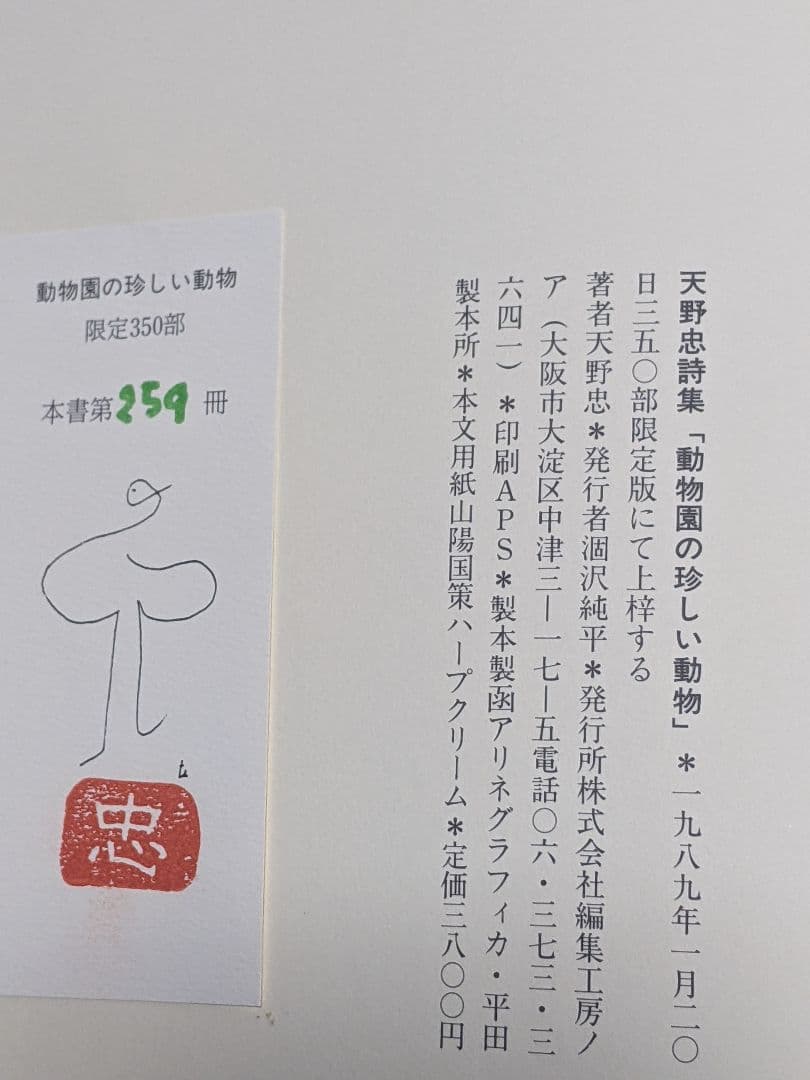 天野忠詩集「動物園の珍しい動物」＊一九八九年一月二〇
日三五〇部限定版にて上梓する
著者天野忠＊発行者涸沢純平＊発行所株式会社編集工房ノ
ア（大阪市大淀区中津三―一七―五電話〇六・三七三・三
六四一）＊印刷APS＊製本製函アリネグラフィカ・平田
製本所＊本文用紙山陽国策ハープクリーム＊定価三八〇〇円
動物園の珍しい動物
限定350部
本書第259冊
忠